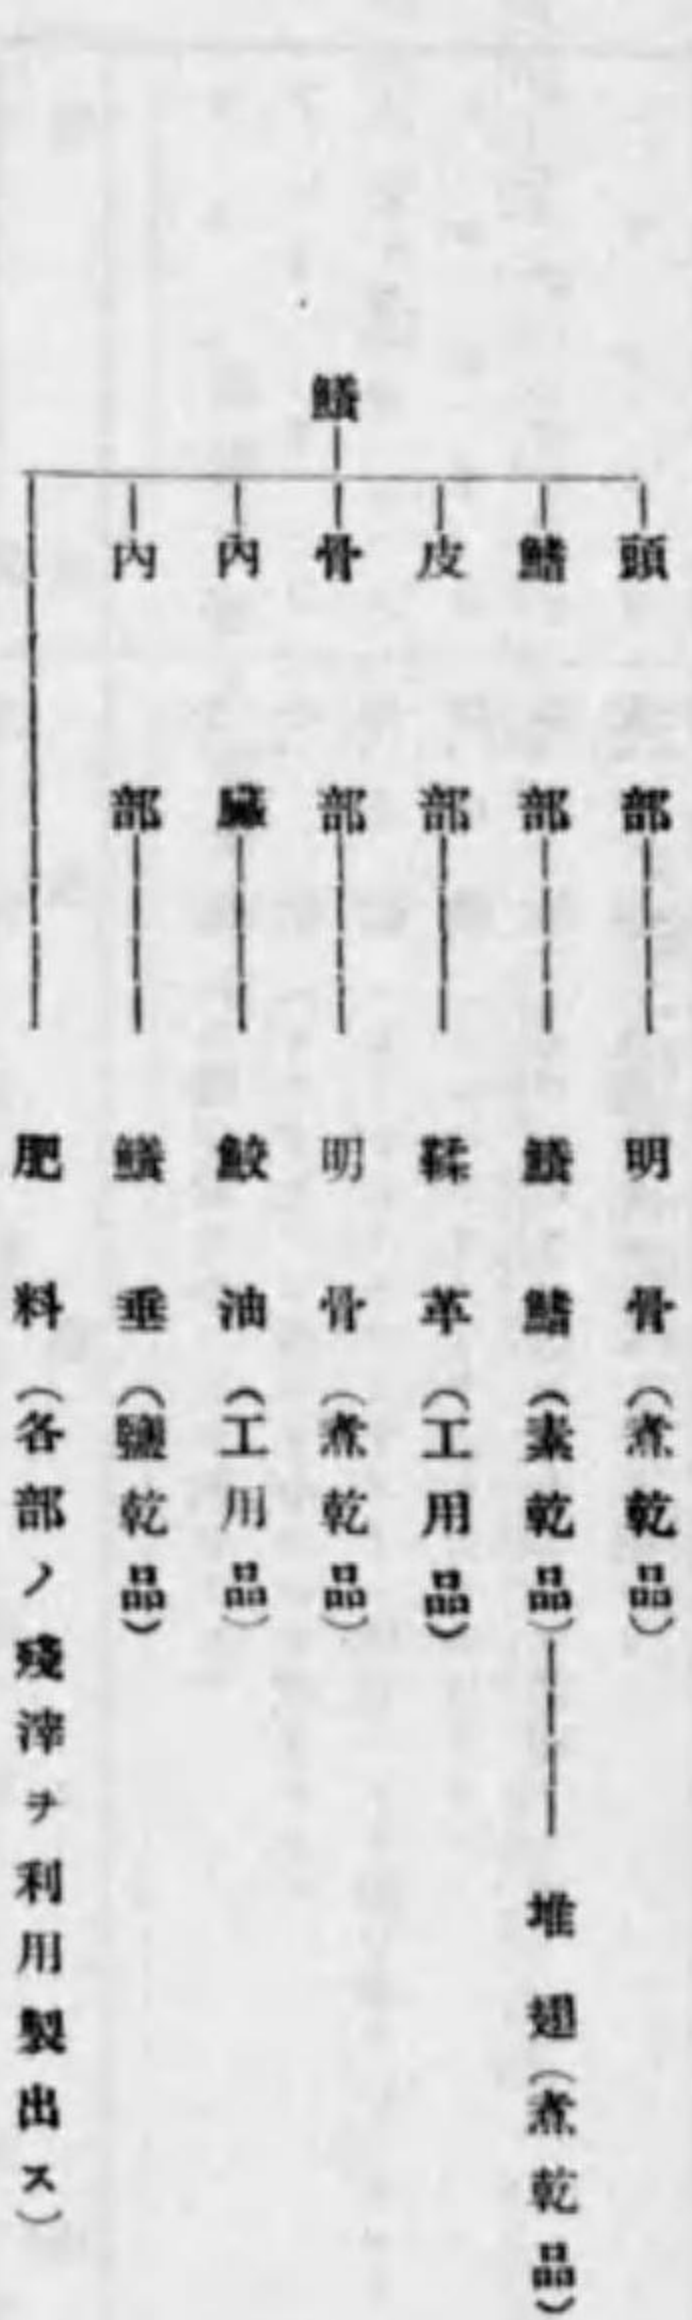 鱶
頭部 明骨(煮乾品)
鰭部 鱶鰭(素乾品) 堆翅(煮乾品)
皮部 鞣革(工用品)
骨部 明骨(煮乾品)
內臟 鮫油(工用品)
內部 鱶垂(鹽乾品)
肥料(各部ノ殘滓ヲ利用製出ス)